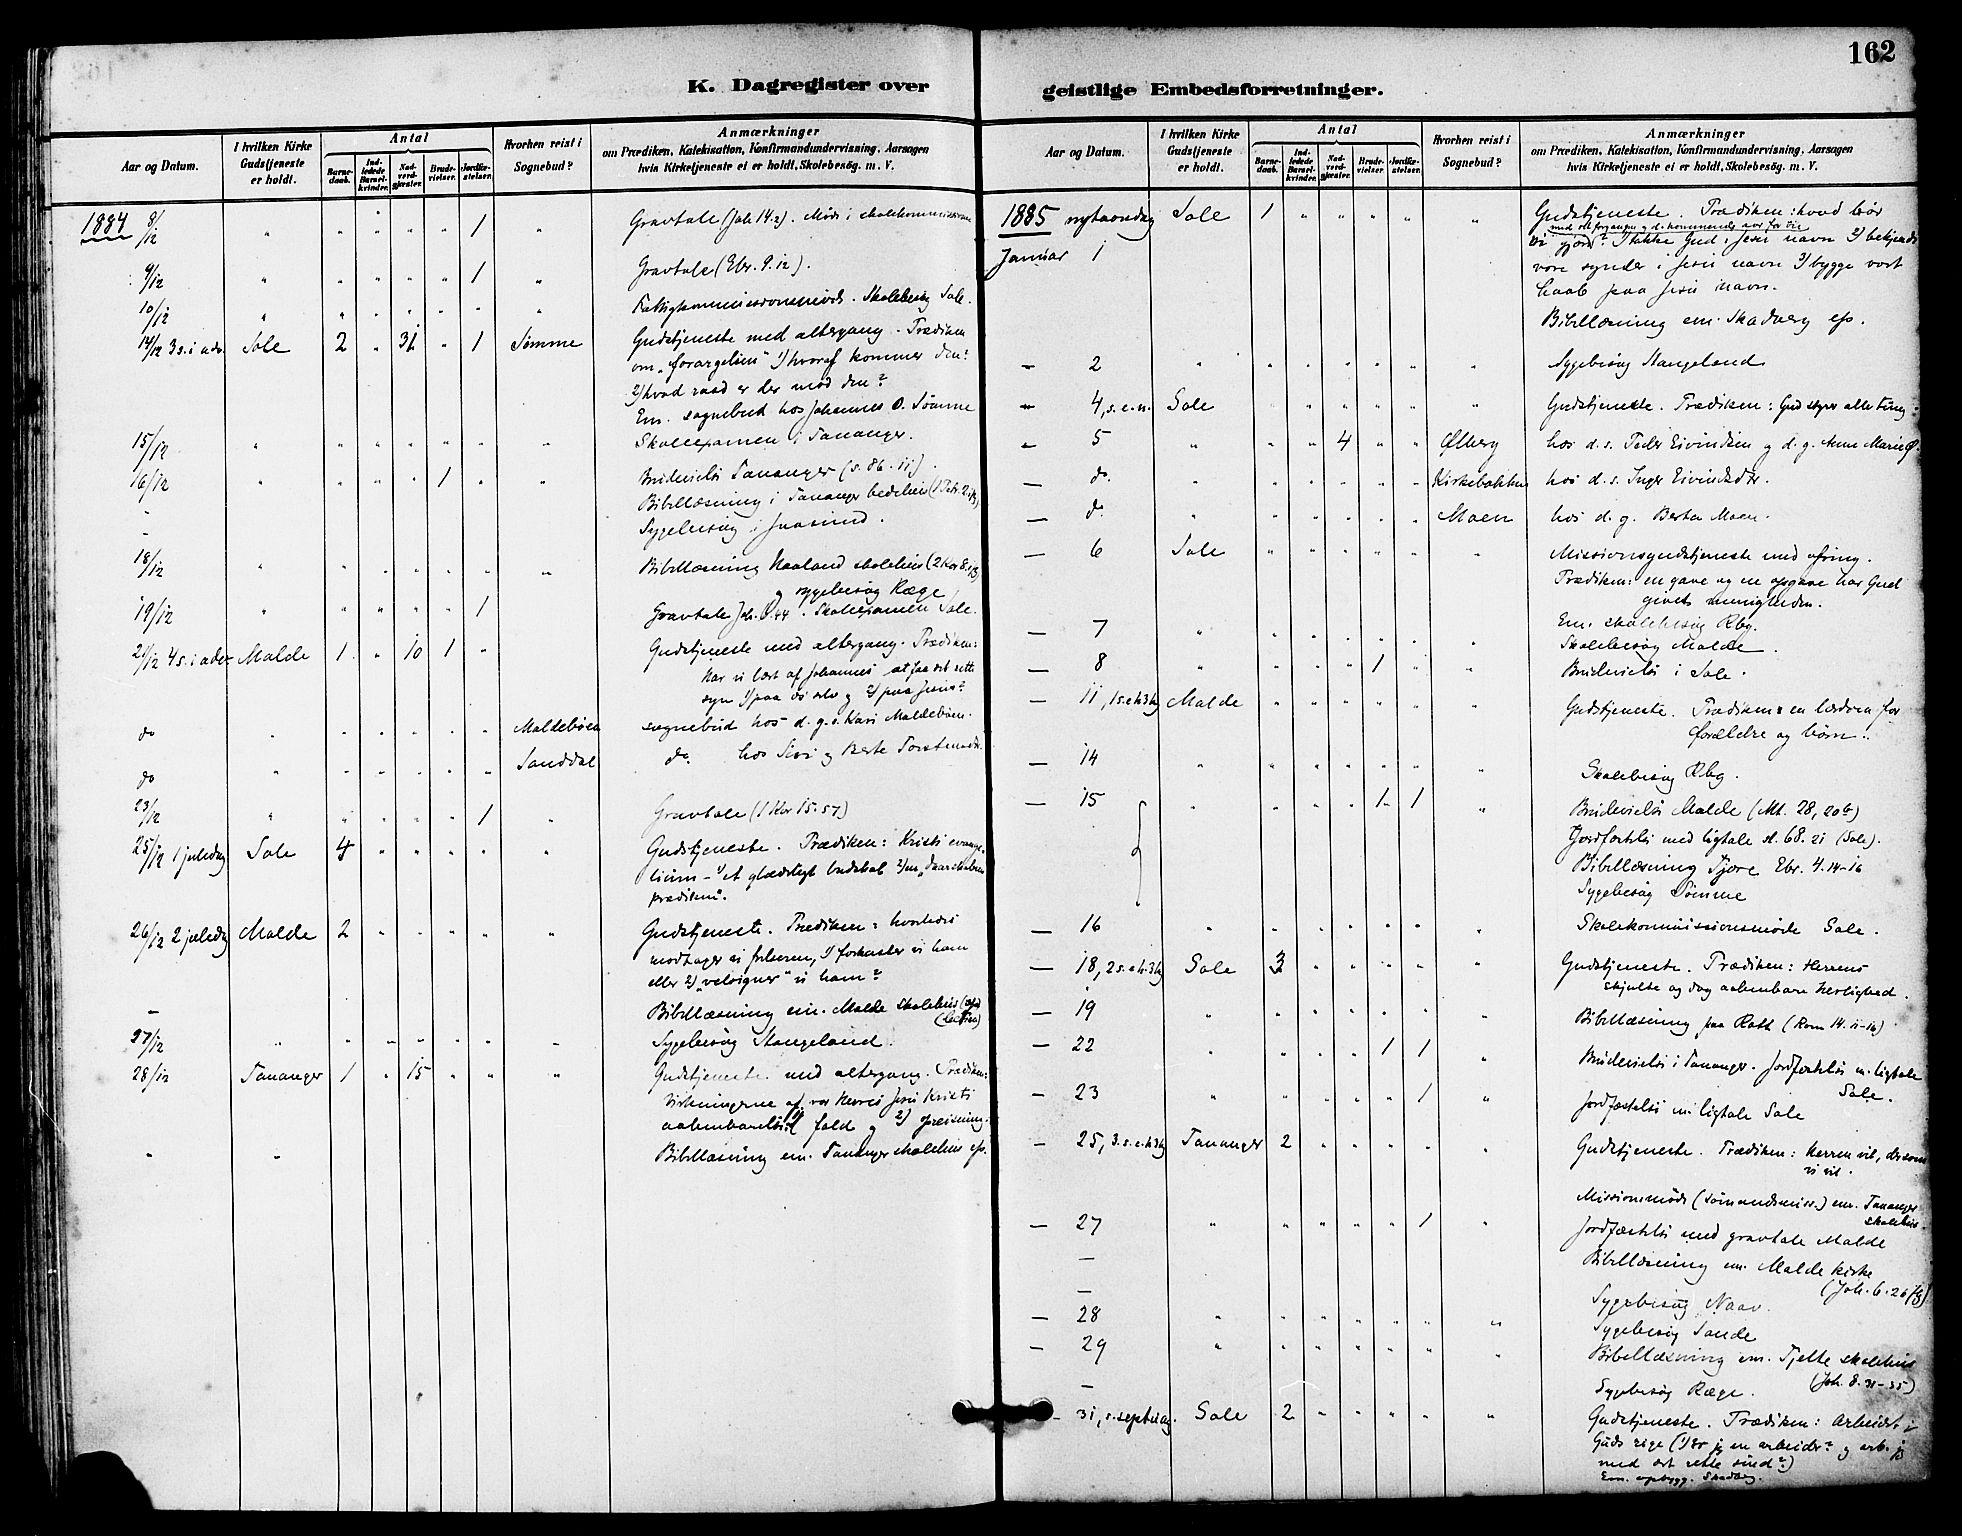 162
K. Dagregister over
Aar og Datum.
I hvilken Kirke Gudstjeneste er holdt.
Antal
Barne-daab.
Ind-ledede Barsel-kvinder.
Nad-verd-gjæster.
Brude-vielser.
Jordfæ-stelser.
Hvorhen reist i Sognebud?
Anmærkninger
om Prædiken, Katekisation, Konfirmandundervisning. Aarsagen
hvis Kirketjeneste ei er holdt, Skolebesög. m. V.
1884 8/12 " " " " 1 " Gravtale (Joh 14.2). Møde i skolekommissionen
9/12 " " " " " 1 " Gravtale (Ebr. 9.12).
10/12 " " " " " " " Fattigkommissionsmøde. Skolebesøg Sole.
14/12 3 s. i adv. Sole 2 " 31 " 1 Sømme Gudstjeneste med altergang. Prædiken
om "forargelsen" 1) hvoraf kommer den?
2) hvad raad er der mod den?
Em. sognebud hos Johannes O. Sømme
15/12 " " " " " " " Skoleexamen i Tananger.
16/12 " " " " 1 " " Brudevielse Tananger (s. 86.11).
Bibellæsning i Tananger bedehus (1 Petr. 2.
- Sygebesøg i Jaasund.
18/12 " " " " " " " Bibellæsning Haaland skolehus (2 Kor 8.
og sygebesøg Ræge
19/12 " " " " " 1 Gravtale Joh. 44. Skoleexamen Sole.
21/12 4 s. i adv. Malde 1 " 10 1 " Gudstjeneste med altergang. Prædiken:
Har vi lært af Johannes at faa det rette
syn 1) paa os selv og 2) paa Jesus?
do " " " " " " Maldebøen sognebud hos d. g. s. Kari Maldebøen.
do " " " " " " Sanddal do hos Siri og Berte Torstensdtr.
23/12 " " " " " 1 " Gravtale (1 Kor 15.57)
25/12 1 juledag Sole 4 " " " " " Gudstjeneste. Prædiken: Kristi evange-
lium – 1) et glædeligt budskab 2)
prædiken".
26/12 2 juledag Malde 2 " " " " " Gudstjeneste. Prædiken: hvorledes
modtager vi frelseren, 1) forkaster vi ham
eller 2) "velsigner" vi ham?
- Bibellæsning em. Malde skolehus
27/12 " " " " " " " Sygebesøg Stangeland.
28/12 Tananger 1 " 15 " " " Gudstjeneste med altergang. Prædiken:
Virkningerne af vor Herres Jesu Kristi
aabenbarelse 1) fald og 2) opreisning.
" " Bibellæsning em. Tananger skolehus
geistlige Embedsforretninger.
Aar og Datum.
I hvilken Kirke Gudstjeneste er holdt.
Antal
Barne-daab.
Ind-ledede Barsel-kvinder.
Nad-verd-gjæster.
Brude-vielser.
Jordfæ-stelser.
Hvorhen reist i Sognebud?
Anmærkninger
om Prædiken, Katekisation, Konfirmandundervisning. Aarsagen
hvis Kirketjeneste ei er holdt, Skolebesög. m. V.
1885 nytaarsdag Sole 1 " " " " " Gudstjeneste. Prædiken: hvad bør
med det forgangne og det kommende aar for øie
Januar 1 vi gjøre? 1) takke Gud i Jesu navn 2) bekjende
vore synder i Jesu navn 3) bygge vort
haab paa Jesu navn.
Bibellæsning em. Skadberg
— 2 " " " " " " " Sygebesøg Stangeland
— 4, s. e. n. Sole " " " " " " Gudstjeneste. Prædiken: Gud styrer alle ting
— 5 " " " 4 " " Ølberg hos d. s. Peder Eivindsen og d. g. Anne Marie Ø.
— do " " " " " " Kirkebakken hos d. s. Inger Eivindsdtr.
— do " " " " " " Moen hos d. g. Berta Moen.
— 6 Sole " " " " " " Missionsgudstjeneste med ofring.
Prædiken: en gave og en opgave har Gud
givet menigheden.
— 7 " " " " " " " Em. skolebesøg Rbg.
Skolebesøg Malde.
— 8 " " " " 1 " " Brudevielse i Sole.
— 11, 1 s. e. h3k Malde " " " " " " Gudstjeneste. Prædiken: en lærdom for
forældre og børn.
— 14 " " " " " " " Skolebesøg Rbg.
— 15 " " " " 1 1 " Brudevielse Malde (Mt. 28, 20b)
Jordfæstelse med ligtale sl. 68.21 (Sole).
Bibellæsning Tjora Ebr. 4.14-16
Sygebesøg Sømme
— 16 " " " " " " " Skolekommissionsmøde Sole.
— 18, 2 s. e. h. 3k Sole 3 " " " " " Gudstjeneste. Prædiken: Herrens
skjulte og dog aabenbare herlighed.
— 19 " " " " " " " Bibellæsning paa Rott (Rom 14.11-16)
— 22 " " " " 1 1 " Brudevielse i Tananger. Jordfæstelse m. ligtale
Sole.
— 23 " " " " " 1 " Jordfæstelse m. ligtale Sole
— 25, 3. s. e. h3k Tananger 2 " " " " " Gudstjeneste. Prædiken: Herren vil, dersom
vi vil.
Missionsmøde (sømandsmiss.) em. Tananger
skolehus.
— 27 " " " " " 1 " Jordfæstelse med gravtale Malde
— Bibellæsning em. Malde kirke
(Joh. 6.26
— Sygebesøg Naav.
— 28 " " " " " " " Sygebesøg Sande
— 29 " " " " " " " Bibellæsning em. Tjelte skolehus
(Joh. 8.31-35)
— Sygebesøg Ræge.
— 31, s. septuag. Sole 2 " " " " " Gudstjeneste. Prædiken: Arbeidet i
Guds rige (1) Er jeg en arbeider? og arb. jeg
med det rette sind?)
Em. opbygg. Skadbg.